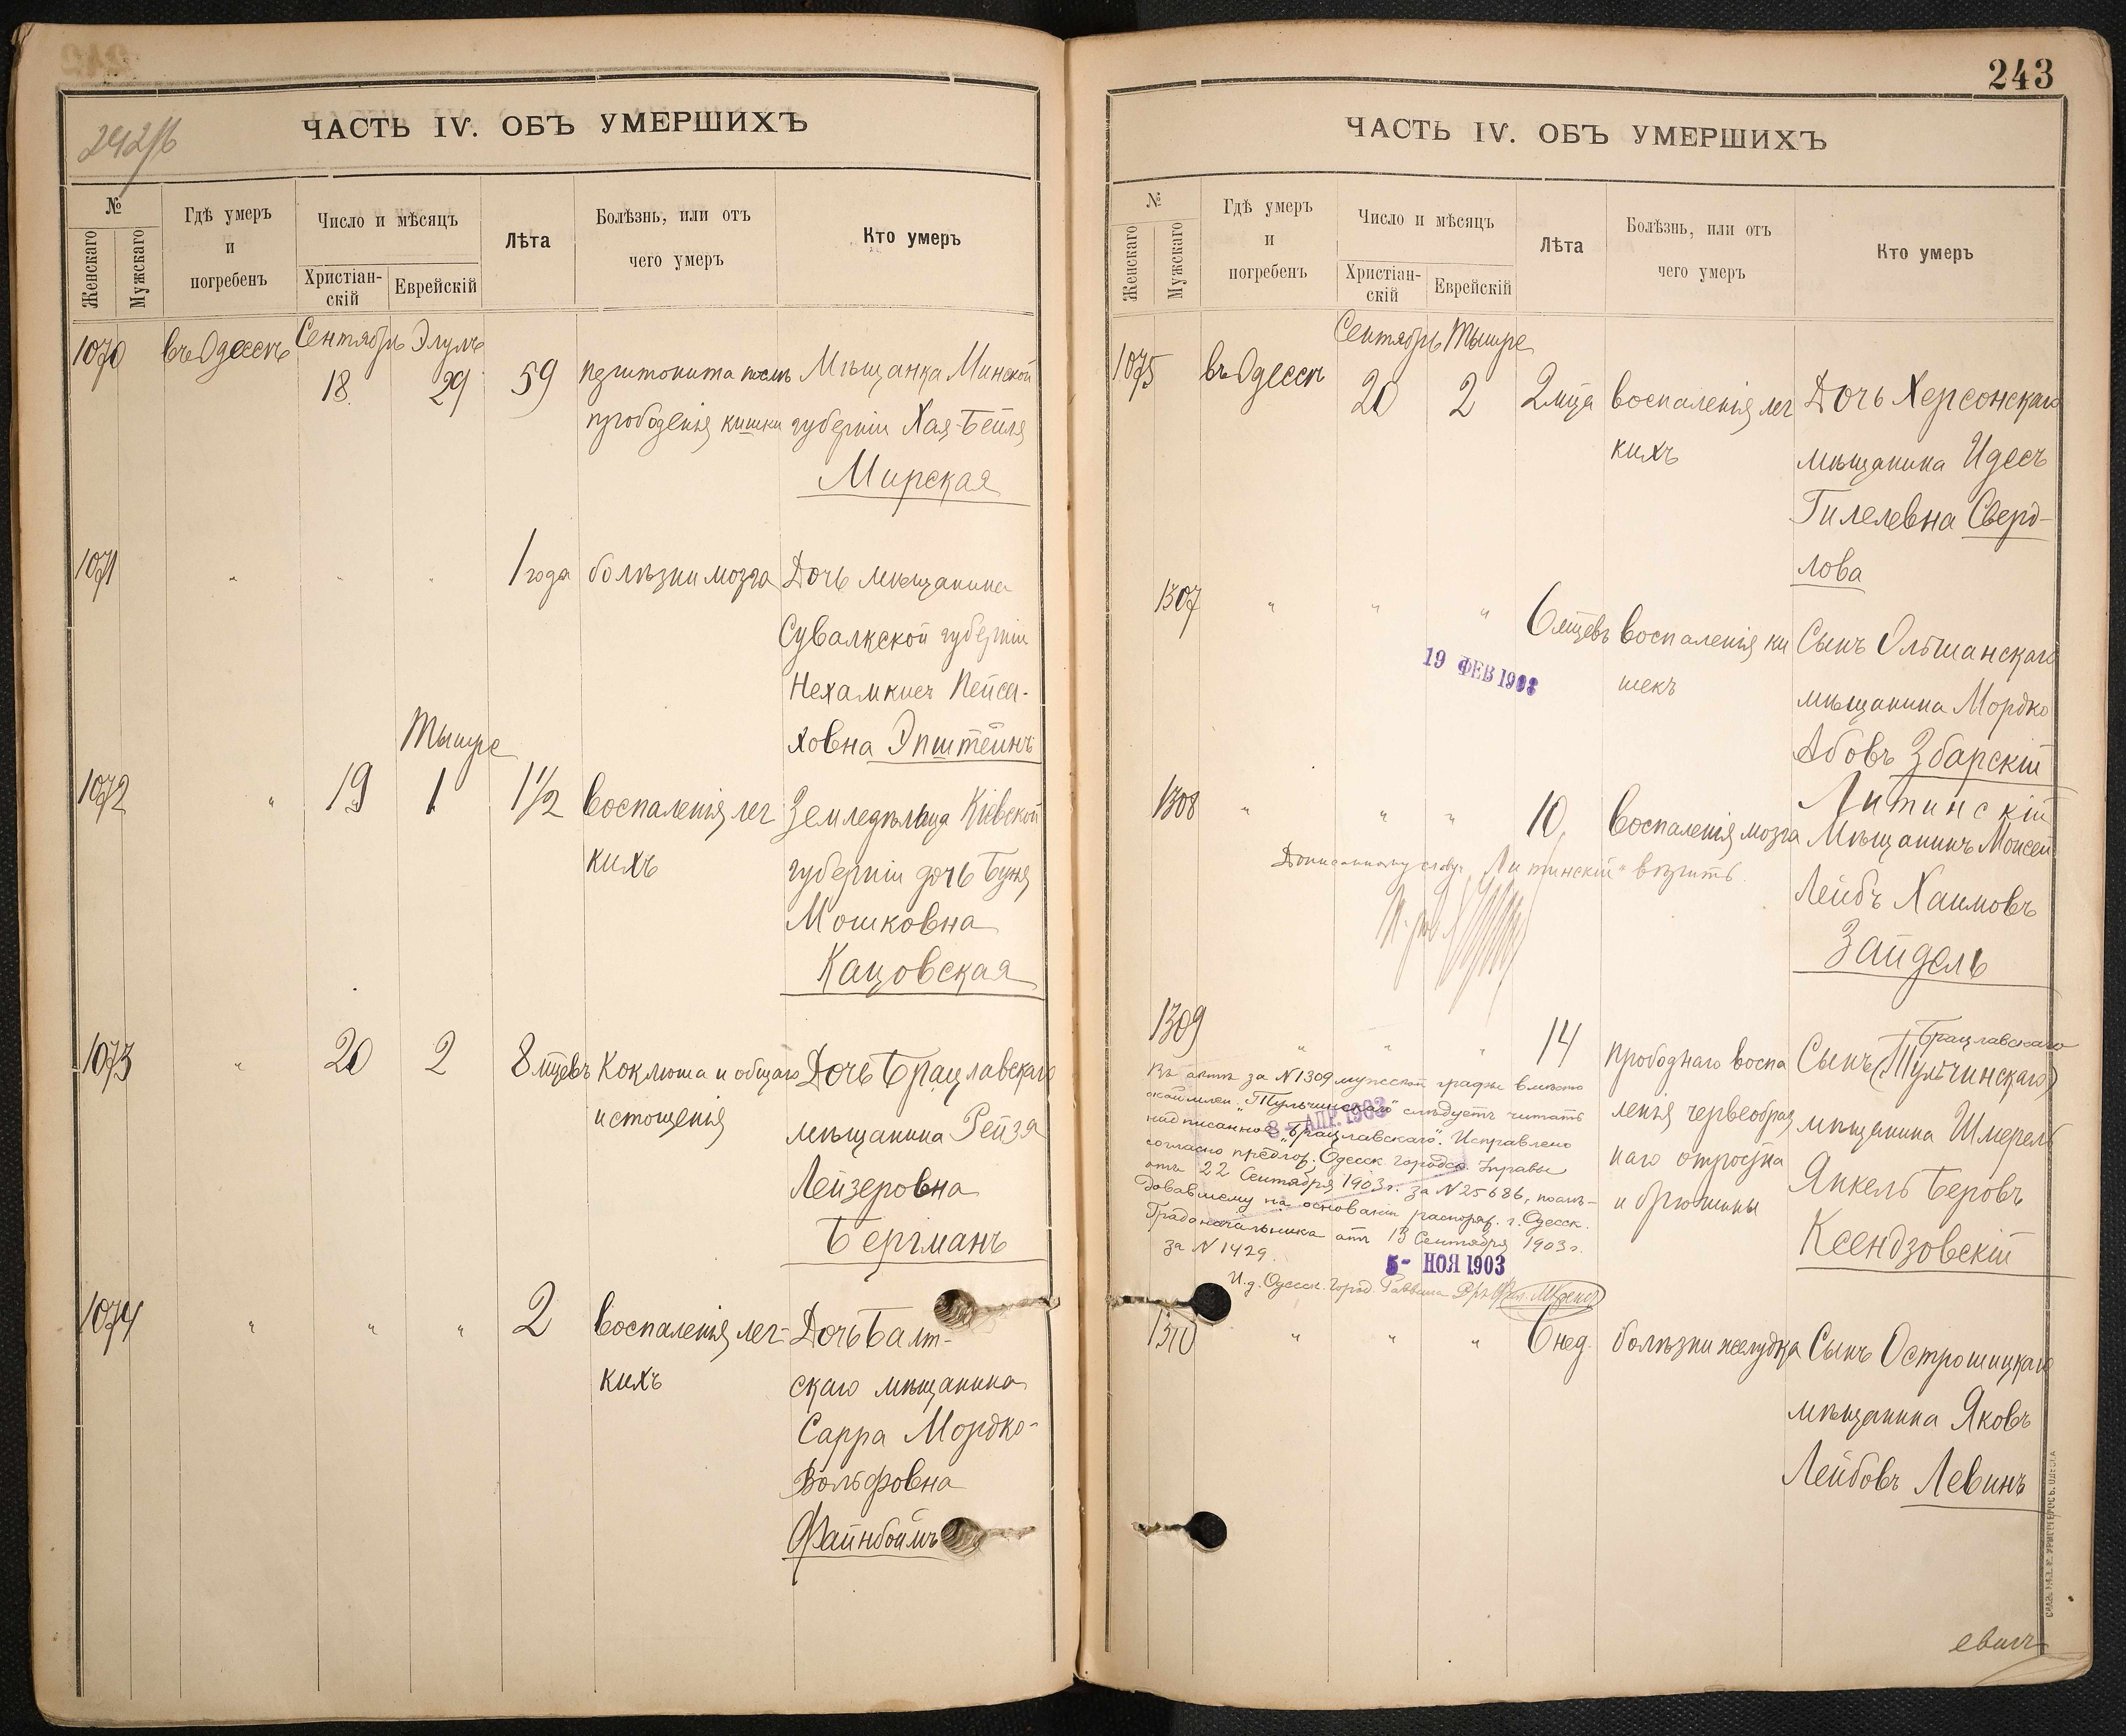 242/б
ЧАСТЬ IV. ОБЪ УМЕРШИХЪ
№
Женскаго
Мужскаго
Гдѣ умеръ
и
погребенъ
Число и мѣсяцъ
Христіан-
скій
Еврейскій
Лѣта
Болѣзнь, или отъ
чего умеръ
Кто умеръ
1070 въ Одессѣ Сентябрь 18 Элулъ 29 59 перитонита послѣ Мѣщанка Минской
прободенія кишки губерніи Хая-Бейля
Мирская
1071 " " " 1 года болѣзни мозга Дочь мѣщанина
Сувалкской губерніи
Пейса-
ховна Эпштейнъ
Тышре
1072 " 19 1 1 1/2 воспаленія лег Земледѣльца Кіевской
кихъ губерніи дочь
Мошковна
Кацовская
1073 " 20 2 8 мцевъ Коклюша и общаго Дочь Брацлавскаго
истощенія мѣщанина Рейзя
Лейзеровна
Бергманъ
1074 " " " 2 воспаленія лег- Дочь Балт-
кихъ скаго мѣщанина
Сарра Мордко-
Вольфовна
Файнбоймъ
243
ЧАСТЬ IV. ОБЪ УМЕРШИХЪ
№
Женскаго
Мужскаго
Гдѣ умеръ
и
погребенъ
Число и мѣсяцъ
Христіан-
скій
Еврейскій
Лѣта
Болѣзнь, или отъ
чего умеръ
Кто умеръ
Сентябрь Тышре
1075 въ Одессѣ 20 2 2 мца воспаленія лег Дочь Херсонскаго
кихъ мѣщанина Идесъ
Гилелевна Сверд-
лова
1307 " " " 6 мцевъ воспаленія ки Сынъ Ольшанскаго
19 ФЕВ 1903
шекъ мѣщанина Мордко
Абовъ Збарскій
Литинскій
1308 " " " 10 Воспаленія мозга Мѣщанинъ Моисей
Дописанному слову "Литинскій" вѣрить.
Лейбъ Хаимовъ
Зайдель
Брацлавскаго
1309 " " " 14 прободнаго воспа Сынъ (Тульчинскаго)
ленія червеобраз мѣщанина Шмерель
наго отростка Янкель Беровъ
и брюшины Ксендзовскій
Въ актѣ за N 1309 мужской графы вмѣсто
"Тульчинскаго" слѣдуетъ читать
надписанное "Брацлавскаго". Исправлено
8 - АПР. 1903
согласно предлож. Одесск. городск. Управы
отъ 22 Сентября 1903 г. за N 25686, послѣ-
довавшему на основаніи распоряж. г. Одесск.
Градоначальника отъ 13 Сентября 1903 г.
за N 1429.
5 - НОЯ 1903
И.д. Одесск. Город. Раввина
1310 " " " 6 нед. болѣзни желудка Сынъ Острошицкаго
мѣщанина Яковъ
Лейбовъ Левинъ